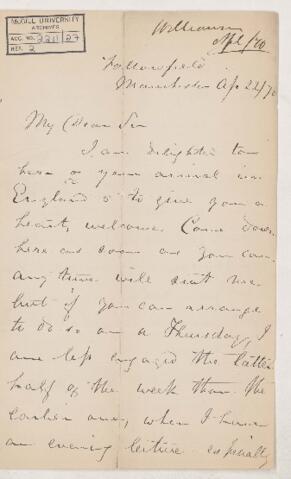 McGILL UNIVERSITY
ARCHIVES
ACC. NO. 2211/27
REF. 2
Williamson
Apl /70
Fallowfield
Manchester Ap 22/70
My Dear Sir
I am delighted to
hear of your arrival in
England & to give you a
hearty welcome. Come down
here as soon as you can
any time will suit me
but if you can arrange
to do so on a Thursday, I
am less engaged the latter
half of the week than the
earlier one, when I have
an evening lecture especially